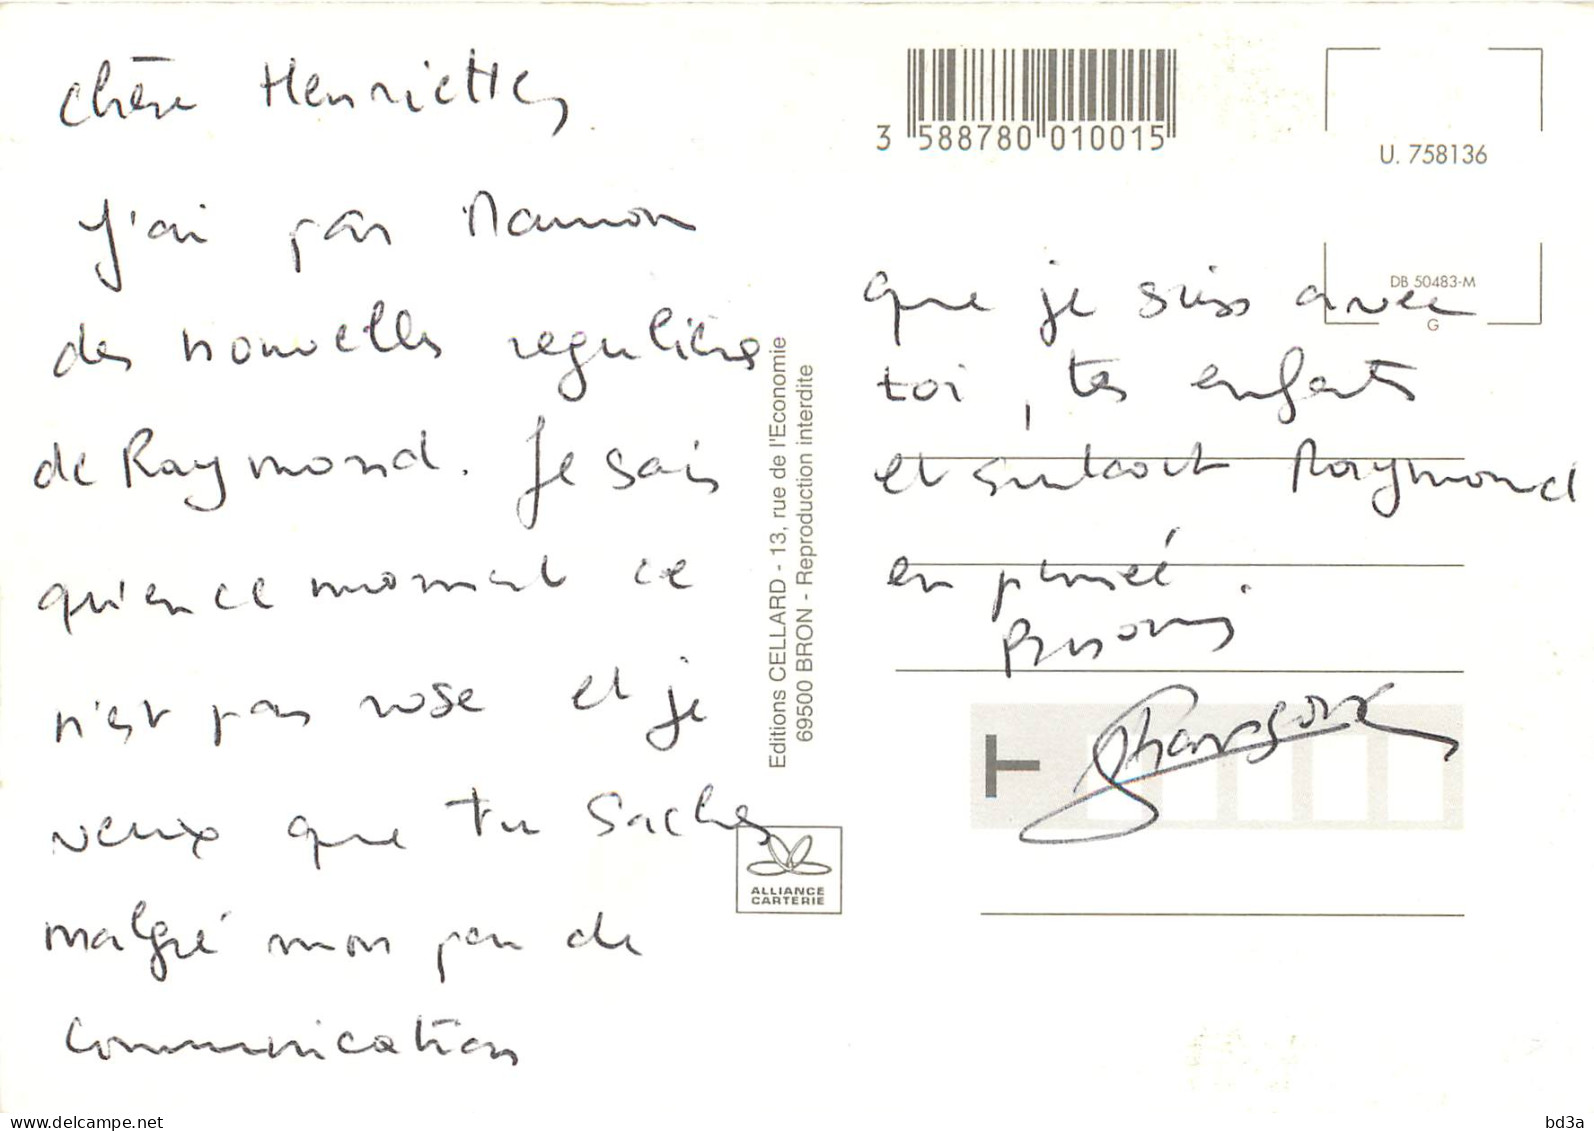 Chère Henriette,
J'ai par Maman
des nouvelles regulière
de Raymond. Je sais
qu'en ce moment ce
n'est pas rose et je
veux que tu saches
malgré mon peu de
communication
3 588780 010015
U. 758136
DB 50483-M
G
que je suis avec
toi, tes enfants
et surtout Raymond
en pensée.
Bisous
Editions CELLARD - 13, rue de l'Economie
69500 BRON - Reproduction interdite
T
ALLIANCE
CARTERIE
delcampe.net
bd3a